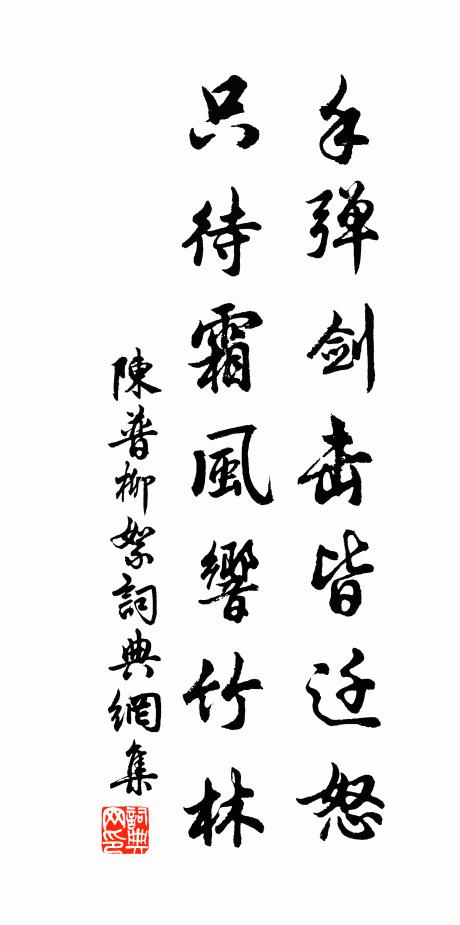 手弹剑击皆迁怒
只待霜風響竹林
陳普柳絮詞典網集
詞典
网印